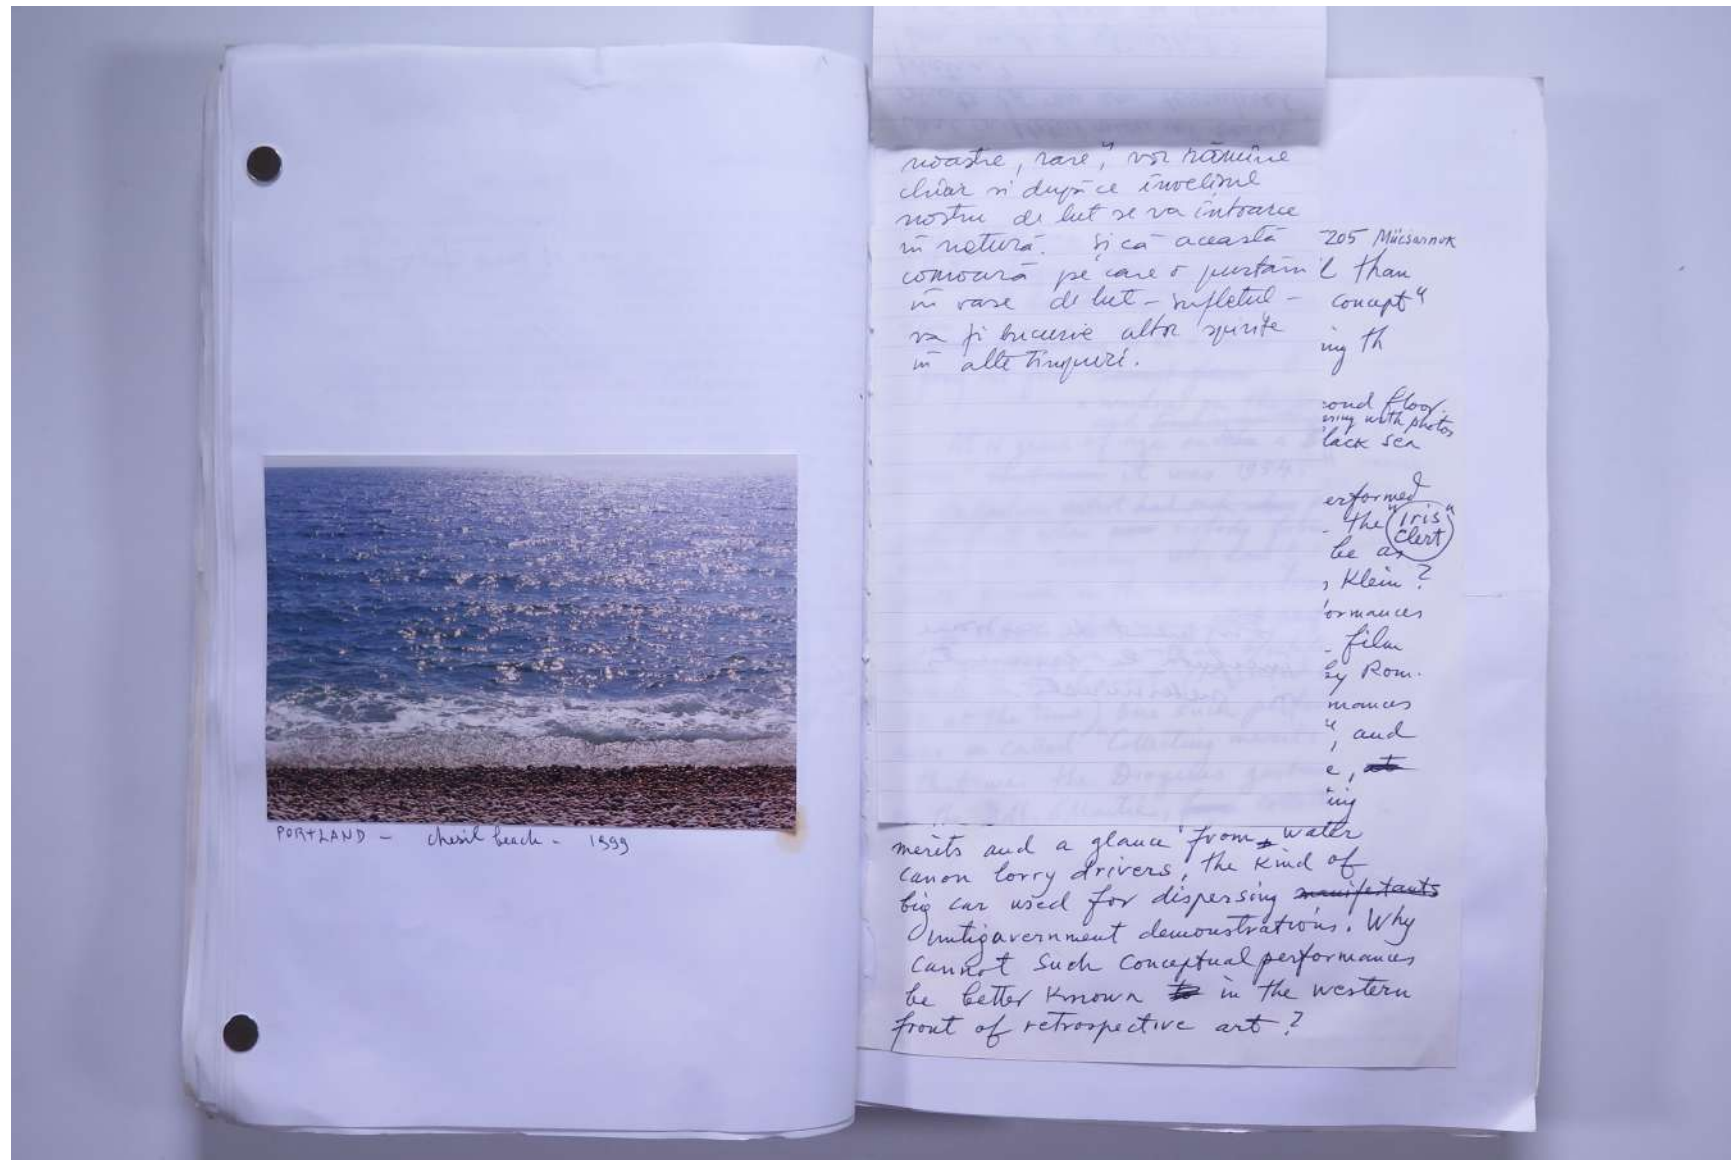 PORTLAND - chesil beach - 1999
noastre, rare", vor rămîne
chiar si după ce învelisul
nostru de lut se va întoarce
în natură. Și că această
comoară pe care o purtăm
în vase de lut - sufletul -
va fi bucurie altor spirite
în alte timpuri.
205 Mücsarnok
l than
concept"
ing th
cond floor.
ering with photos
lack sea
erformed
- the "Iris
Clert"
be as
s Klein ?
ormances
- film
by Rom.
mances
", and
e,
ing
merits and a glance from water
canon lorry drivers, the kind of
big car used for dispersing manifestants
antigavernment demonstrations. Why
cannot such conceptual performances
be better known to in the western
front of retrospective art ?